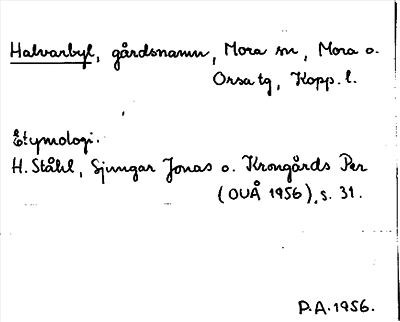 Halvarbyl, gårdsnamn, Mora sn, Mora o.
Orsa tg, Kopp. l.
Etymologi.
H. Ståhl, Sjungar Jonas o. Krongårds Per
(OUÅ 1956), s. 31.
P.A. 1956.